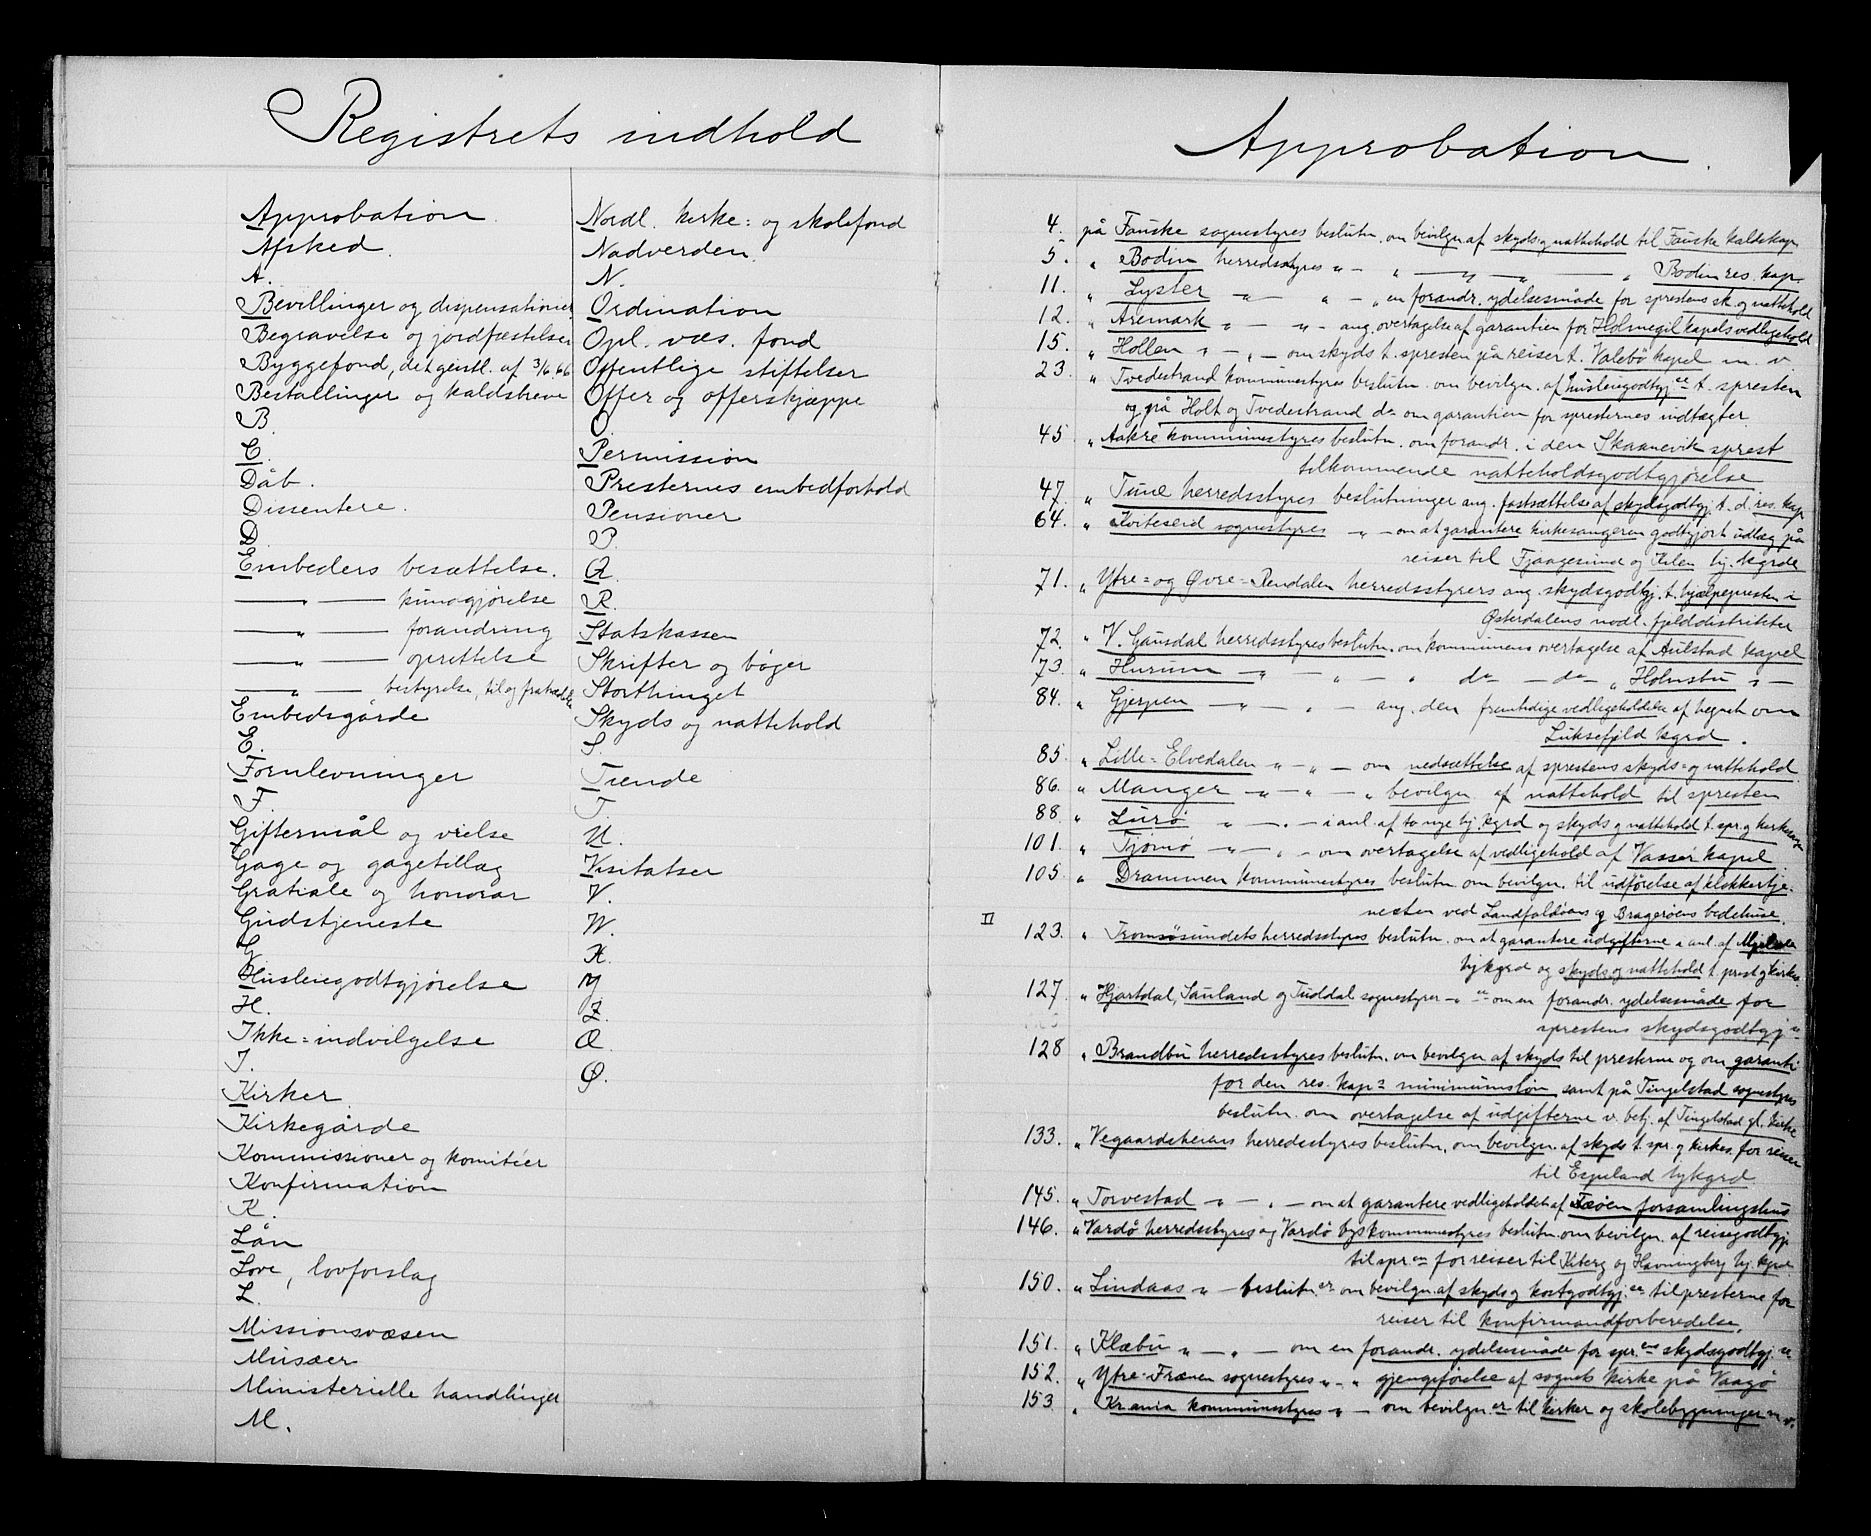 Registrets indhold
Approbation.
Afsked.
A.
Bevillinger og dispensationer
Begravelse og jordfæstelser
Byggefond, det geistl. af 3/6.66
Bestallinger og kaldsbreve
B.
C.
Dåb.
Dissentere.
D.
Embeders besættelse.
— " — kundgjørelse
— " — forandring
— " — oprettelse
— " — bestyrelse, til og fratrædelse
Embedsgårde
E.
Fornlevninger
F.
Giftermål og vielse
Gage og gagetillæg
Gratiale og honorar
Gudstjeneste
G.
Husleiegodtgjørelse
H.
Ikke=indvilgelse
I.
Kirker
Kirkegårde
Kommissioner og komitéer
Konfirmation
K.
Lån
Love, lovforslag
L.
Missionsvæsen
Musæer
Ministerielle handlinger
M.
Nordl. kirke= og skolefond
Nadverden.
N.
Ordination
Opl. væs. fond
Offentlige stiftelser
Offer og offerskjæppe
O.
Permission
Presternes embedforhold
Pensioner
P.
Q.
R.
Statskassen
Skrifter og bøger
Storthinget
Skyds og nattehold
S.
Tiende
T.
U.
Visitatser
V.
W.
X.
Y.
Z.
Æ.
Ø.
Approbation.
4. på Fauske sognestyres beslutn. om bevilgn. af skyds- og nattehold til Fauske kaldskap.
5. " Bodin herredsstyres " — " — " — " — " Bodin res. kap.
11. " Lyster — " — " — " en forandr. ydelsesmåde for sprestens sk. og nattehold
12. " Aremark " — " — ang. overtagelse af garantien for Holmegil kapels vedligehold
15. " Hollen " — " — om skyds t. spresten på reiser t. Valebø kapel m. v.
23. " Tvedestrand kommunestyres beslutn. om bevilgn. af husleiegodtgj. t. spresten
og på Holt og Tvedestrand do om garantien for spresternes indtægter.
45. " Aakre kommunestyres beslutn. om forandr. i den Skaanevik sprest
tilkommende natteholdsgodtgjørelse
47. " Tune herredsstyres beslutninger ang. fastsættelse af skydsgodtgj. t. d. res. kap.
64. " Kviteseid sognestyres " — om at garantere kirkesangeren godtgjort udlæg på
reiser til Fjaagesund og Kilen hj. kgrde
71. " Ytre= og Øvre=Rendalen herredsstyrers ang. skydsgodtgj. t. hjælpepresten i
Østerdalens nordl. fjelddistrikter
72. " V. Gausdal herredsstyres beslutn. om kommunens overtagelse af Aulstad kapel
73. " Hurum — " — " — " do — do " Holmsbu " —
84. " Gjerpen — " — " — ang. den fremtidige vedligeholdelse af hegnet om
Luksefjeld kgrd.
85. " Lille=Elvedalen " — " — om nedsættelse af sprestens skyds= og nattehold
86. " Manger — " — " — " bevilgn. af nattehold til spresten
88. " Lurø " — " — i anl. af to nye hj. kgrd og skyds og nattehold t. spr. og kirkesanger
101. " Tjømø " — " — om overtagelse af vedligehold af Vasser kapel
105. " Drammen kommunestyres beslutn. om bevilgn. til udførelse af klokkertje-
nesten ved Landfaldøens og Bragerøens bedehuse.
II
123. " Tromsøsundets herredsstyres beslutn. om at garantere udgifterne i anl. af
hjkgrd og skyds og nattehold t. prest og kirkes.
127. " Hjartdal, Sauland og Tuddal sognestyrer " om en forandr. ydelsesmåde for
sprestens skydsgodtgj.
128 " Brandbu herredsstyres beslutn. om bevilgn. af skyds til presterne og om garanti
for den res. kaps minimumsløn samt på Tingelstad sognestyres
beslutn. om overtagelse af udgifterne v. betj. af Tingelstad gl. kirke
133. " Vegaardsheiens herredsstyres beslutn. om bevilgn. af skyds t. spr. og kirkes. for reiser
til Espeland hjkgrd.
145. " Torvestad " — " — om at garantere vedligeholdet af Fæøen forsamlingshus
146. " Vardø herredsstyres og Vardø bys kommunestyres beslutn. om bevilgn. af reisegodtgj.
til spr.en for reiser til Kiberg og Havningberg hj. kgrd.
150. " Lindaas " — beslutn.er om bevilgn. af skyds og kostgodtgj. til presterne for
reiser til konfirmandforberedelse.
151. " Klæbu " — " — om en forandr. ydelsesmåde for spr.ens skydsgodtgj.
152. " Ytre=Frænen sognestyres " — " gjenopførelse af sognets kirke på Vaagø
153. " Kr.ania kommunestyres " — om bevilgn.er til kirker og skolebygninger m. v.